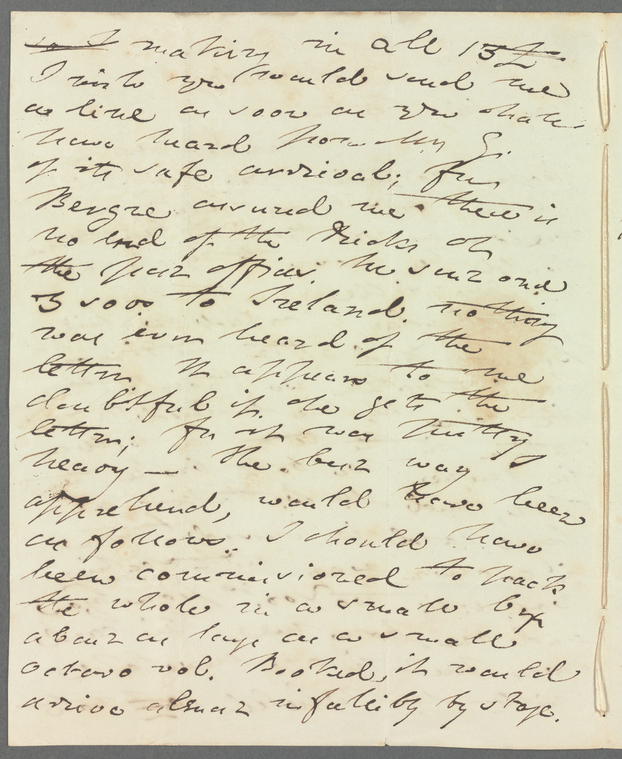 making in all 15
I wish you would send me
a line as soon as you shall
have heard from Mr G.
of its safe arrival; for
Bergne assured me there is
no end of the tricks at
the post offices. He sent one
to Ireland. nothing
was ever heard of the
letter. It appears to me
doubtful if she gets the
letter; for it was
heavy — The best way I
apprehend, would have been
as follows. I should have
been commissioned to pack
the whole in a small box
about as large as a small
octavo vol. Booked, it would
arrive almost infallibly by stage.